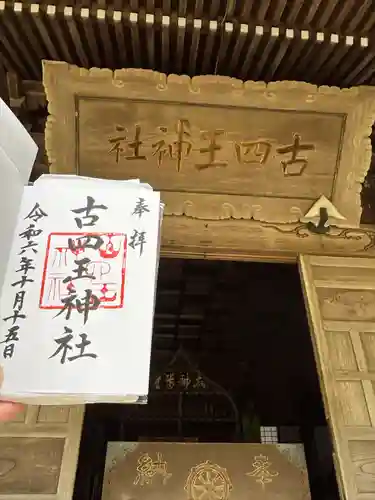 古四王神社
奉拝
古四王神社
令和六年十月十五日
奉
納